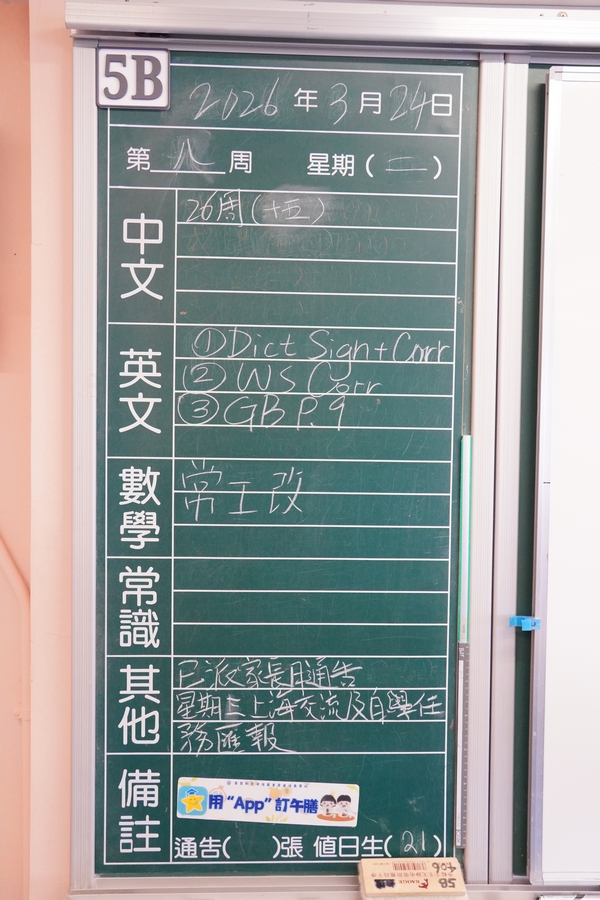 5B
2026年3月24日
第八周 星期(二)
中文
26周(十五)
英文
①Dict Sign+Corr
②WS Corr
③GB P.9
數學
常工改
常識
其他
已派家長日通告
星期三上海交流及自學任
務匯報
備註
用“App”訂午膳
通告( )張 值日生(21)
5B
406